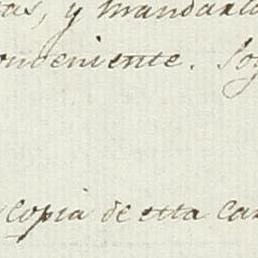 as, y mandarlo
onveniente. So
copia de esta car